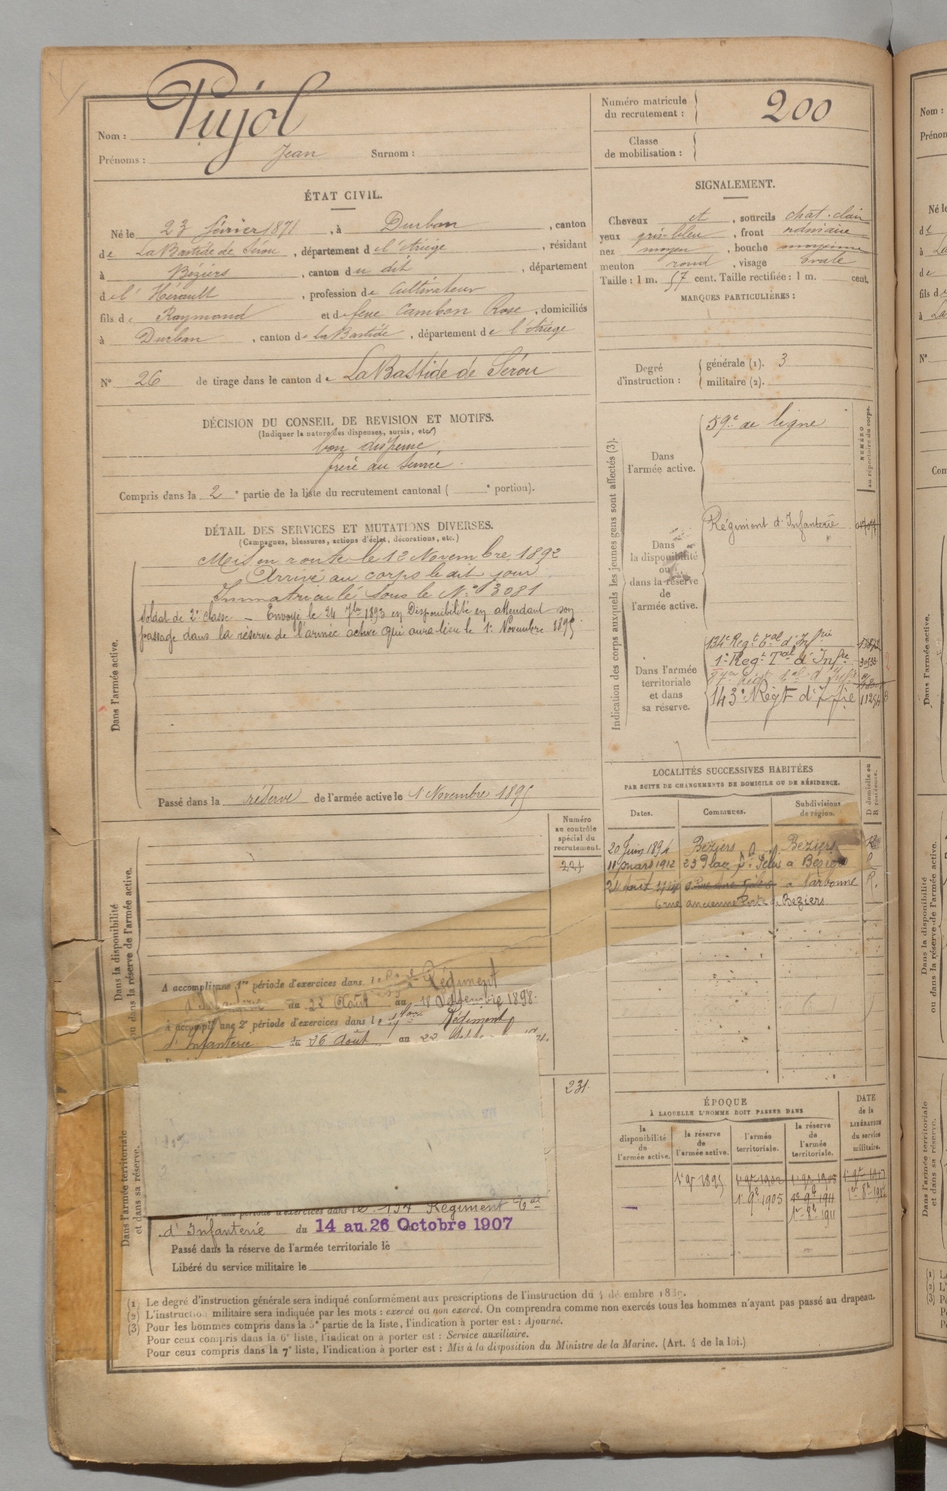 Nom : Pujol
Prénoms : Jean Surnom :
Numéro matricule
du recrutement : 200
Classe
de mobilisation :
ÉTAT CIVIL.
Né le 23 février 1871, à Durban, canton
de La Bastide de Sérou, département de l'Ariège, résidant
à Béziers, canton du dit, département
de l'Hérault, profession de Cultivateur
fils de Raymond et de feue Cambon Rose, domiciliés
à Durban, canton de La Bastide, département de l'Ariège
N° 26 de tirage dans le canton de La Bastide de Sérou
SIGNALEMENT.
Cheveux et, sourcils chat. clair
yeux gris bleu, front ordinaire
nez moyen, bouche moyenne
menton rond, visage ovale
Taille : 1 m. 67 cent. Taille rectifiée : 1 m. cent.
MARQUES PARTICULIÈRES :
Degré
d'instruction :
générale (1). 3
militaire (2).
DÉCISION DU CONSEIL DE REVISION ET MOTIFS.
(Indiquer la nature des dispenses, sursis, etc.)
bon dispensé
frère au service.
Compris dans la 2e partie de la liste du recrutement cantonal ( e portion).
DÉTAIL DES SERVICES ET MUTATIONS DIVERSES.
(Campagnes, blessures, actions d'éclat, décorations, etc.)
Dans l'armée active.
Mis en route le 12 Novembre 1892
Arrivé au corps le dit jour
Immatriculé sous le N° 3081
Soldat de 2e classe – Envoyé le 24 7bre 1893 en Disponibilité en attendant son
passage dans la réserve de l'armée active qui aura lieu le 1er Novembre 1895
Passé dans la réserve de l'armée active le 1 Novembre 1895
Indication des corps auxquels les jeunes gens sont affectés (3).
NUMÉRO
au répertoire du corps.
Dans
l'armée active.
59e de ligne
Dans
la disponibilité
ou
dans la réserve
de
l'armée active.
Régiment d'Infanterie
Dans l'armée
territoriale
et dans
sa réserve.
134e Regt Tal d'Infrie
1er Regt Tal d'Infie
143e Régt d'Ifie
LOCALITÉS SUCCESSIVES HABITÉES
PAR SUITE DE CHANGEMENTS DE DOMICILE OU DE RÉSIDENCE.
Dates. Communes. Subdivisions de région. D domicile ou R résidence.
20 Juin 1894 Béziers Béziers
11 mars 1912 23 Place à Béziers
24 août à Narbonne R.
6 rue ancienne Porte de Béziers
Dans la disponibilité
ou dans la réserve de l'armée active.
Numéro
au contrôle
spécial du
recrutement.
224
A accompli une 1re période d'exercices dans le Régiment
d'Infanterie du 22 Août au 18 Septembre 1898.
a accompli une 2e période d'exercices dans le Régiment
d'Infanterie du 26 Août au 22
Dans l'armée territoriale
et dans sa réserve.
231
période d'exercices dans le 134 Régiment Tal
d'Infanterie du 14 au 26 Octobre 1907
Passé dans la réserve de l'armée territoriale le
Libéré du service militaire le
ÉPOQUE
À LAQUELLE L'HOMME DOIT PASSER DANS
DATE
de la
LIBÉRATION
du service
militaire.
la disponibilité de l'armée active. la réserve de l'armée active. l'armée territoriale. la réserve de l'armée territoriale.
1er 9e 1895
1er 9e 1905
(1) Le degré d'instruction générale sera indiqué conformément aux prescriptions de l'instruction du 4 décembre 1889.
(2) L'instruction militaire sera indiquée par les mots : exercé ou non exercé. On comprendra comme non exercés tous les hommes n'ayant pas passé au drapeau.
(3) Pour les hommes compris dans la 5e partie de la liste, l'indication à porter est : Ajourné.
Pour ceux compris dans la 6e liste, l'indication à porter est : Service auxiliaire.
Pour ceux compris dans la 7e liste, l'indication à porter est : Mis à la disposition du Ministre de la Marine. (Art. 4 de la loi.)